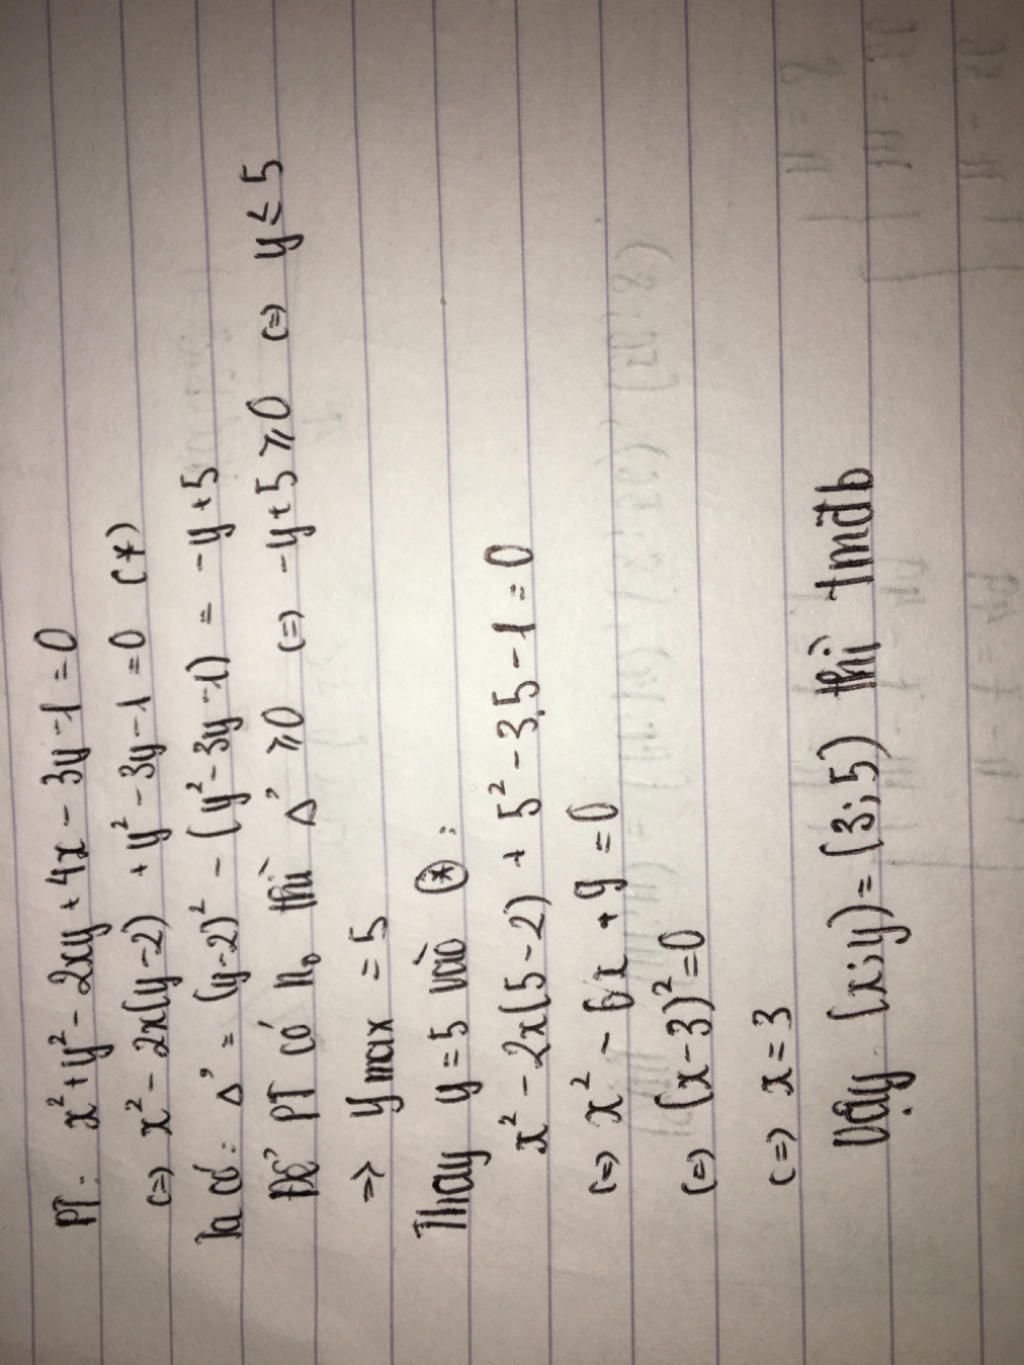 PT: x² + y² - 2xy + 4x - 3y - 1 = 0
(=) x² - 2x(y-2) + y² - 3y - 1 = 0 (*)
Ta có: Δ' = (y-2)² - (y² - 3y - 1) = -y + 5
Để PT có n₀ thì Δ' ≥ 0 (=) -y + 5 ≥ 0 (=) y ≤ 5
=> y max = 5
Thay y = 5 vào (*):
x² - 2x(5-2) + 5² - 3.5 - 1 = 0
(=) x² - 6x + 9 = 0
(=) (x-3)² = 0
(=) x = 3
Vậy (x;y) = (3;5) thì tmđb